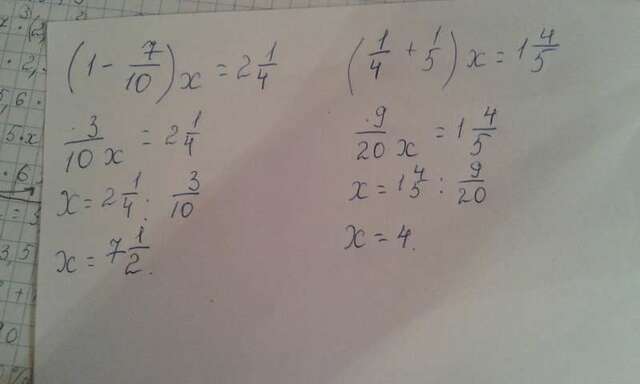 (1 - 7/10) x = 2 1/4
3/10 x = 2 1/4
x = 2 1/4 : 3/10
x = 7 1/2.
(1/4 + 1/5) x = 1 4/5
9/20 x = 1 4/5
x = 1 4/5 : 9/20
x = 4.